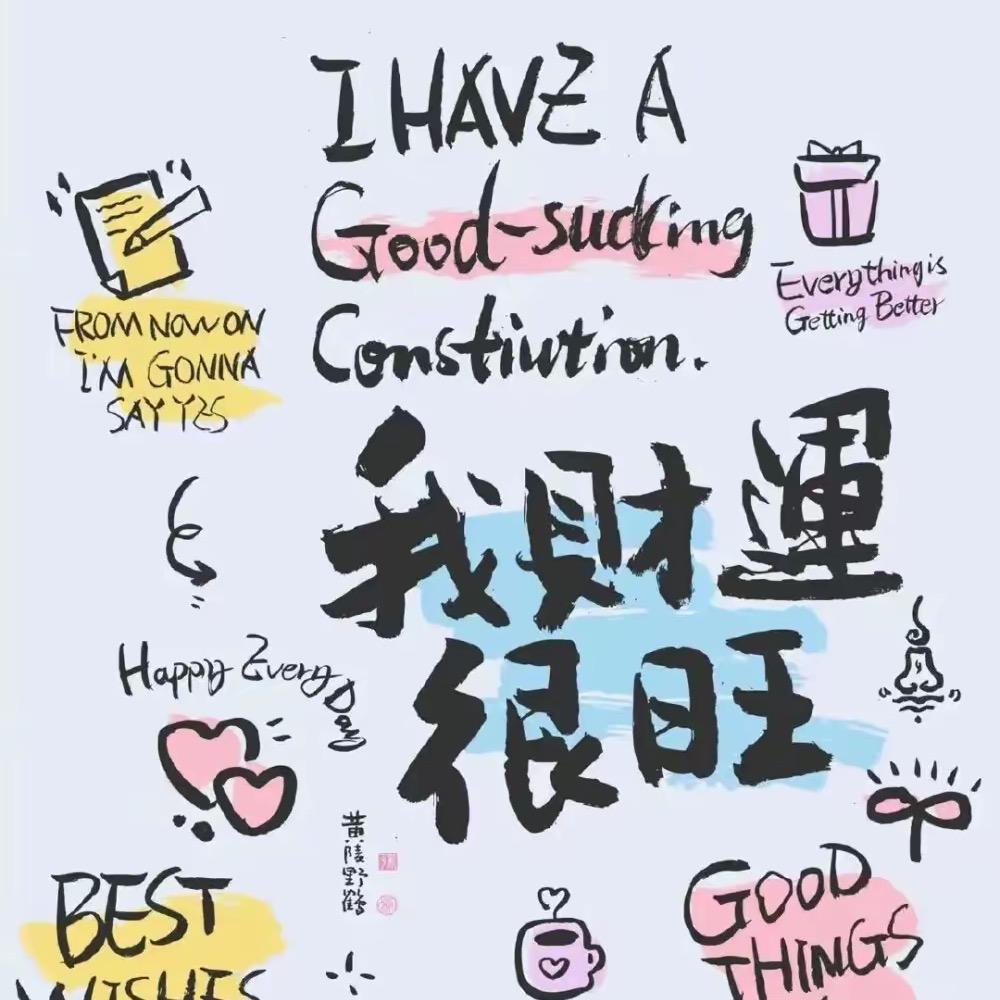 I HAVE A
Good-sucking
Constiution.
Everything is
Getting Better
FROM NOW ON
I'M GONNA
SAY YES
我財運
很旺
Happy Every Day
黄陵野鶴
BEST
WISHES
GOOD
THINGS